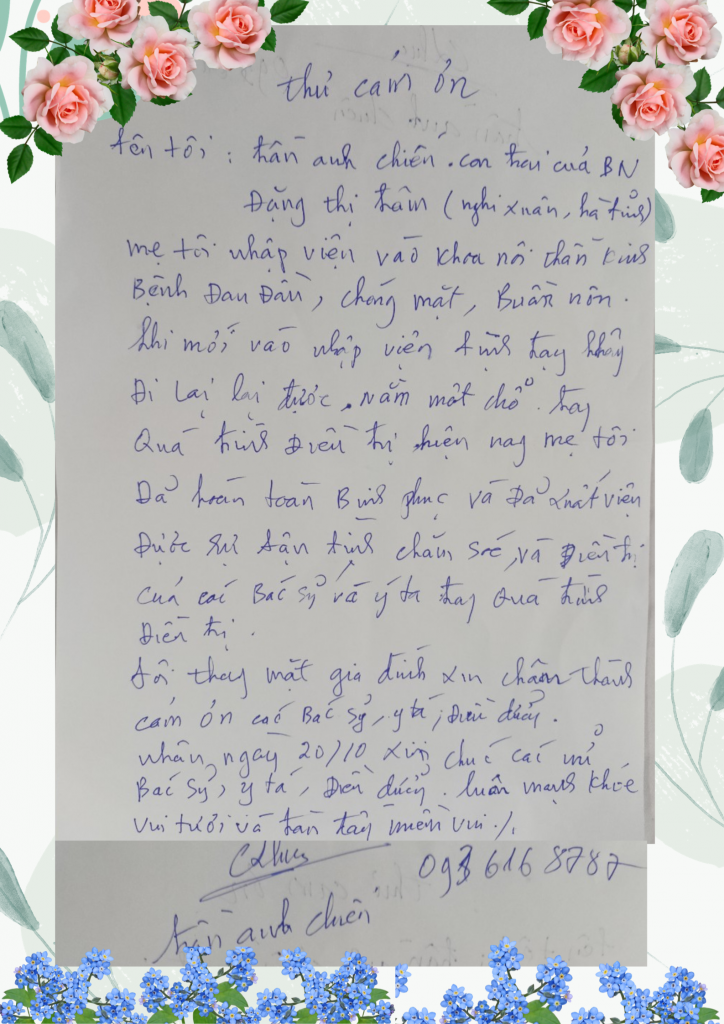 thư cám ơn
tên tôi : trần anh chiến. con trai của BN
Đặng thị trâm (nghi xuân, hà tĩnh)
mẹ tôi nhập viện vào khoa nội thần kinh
Bệnh Đau Đầu, chóng mặt, Buồn nôn.
khi mới vào nhập viện tình trạng không
Đi Lại lại được. nằm một chổ.
Quá trình Điều trị hiện nay mẹ tôi
Đả hoàn toàn Bình phục và Đả xuất viện
Được sự tận tình chăm sóc, và Điều trị
của các Bác Sỷ và y tá trong Quá trình
Điều trị.
tôi thay mặt gia đình xin chân thành
cám ơn các Bác Sỷ, y tá, Điều dưởng.
nhân ngày 20/10 xin chúc các nử
Bác Sỷ, y tá, Điều dưởng. luôn mạnh khỏe
vui tươi và tràn đầy niềm vui ./.
093 616 8787
trần anh chiến